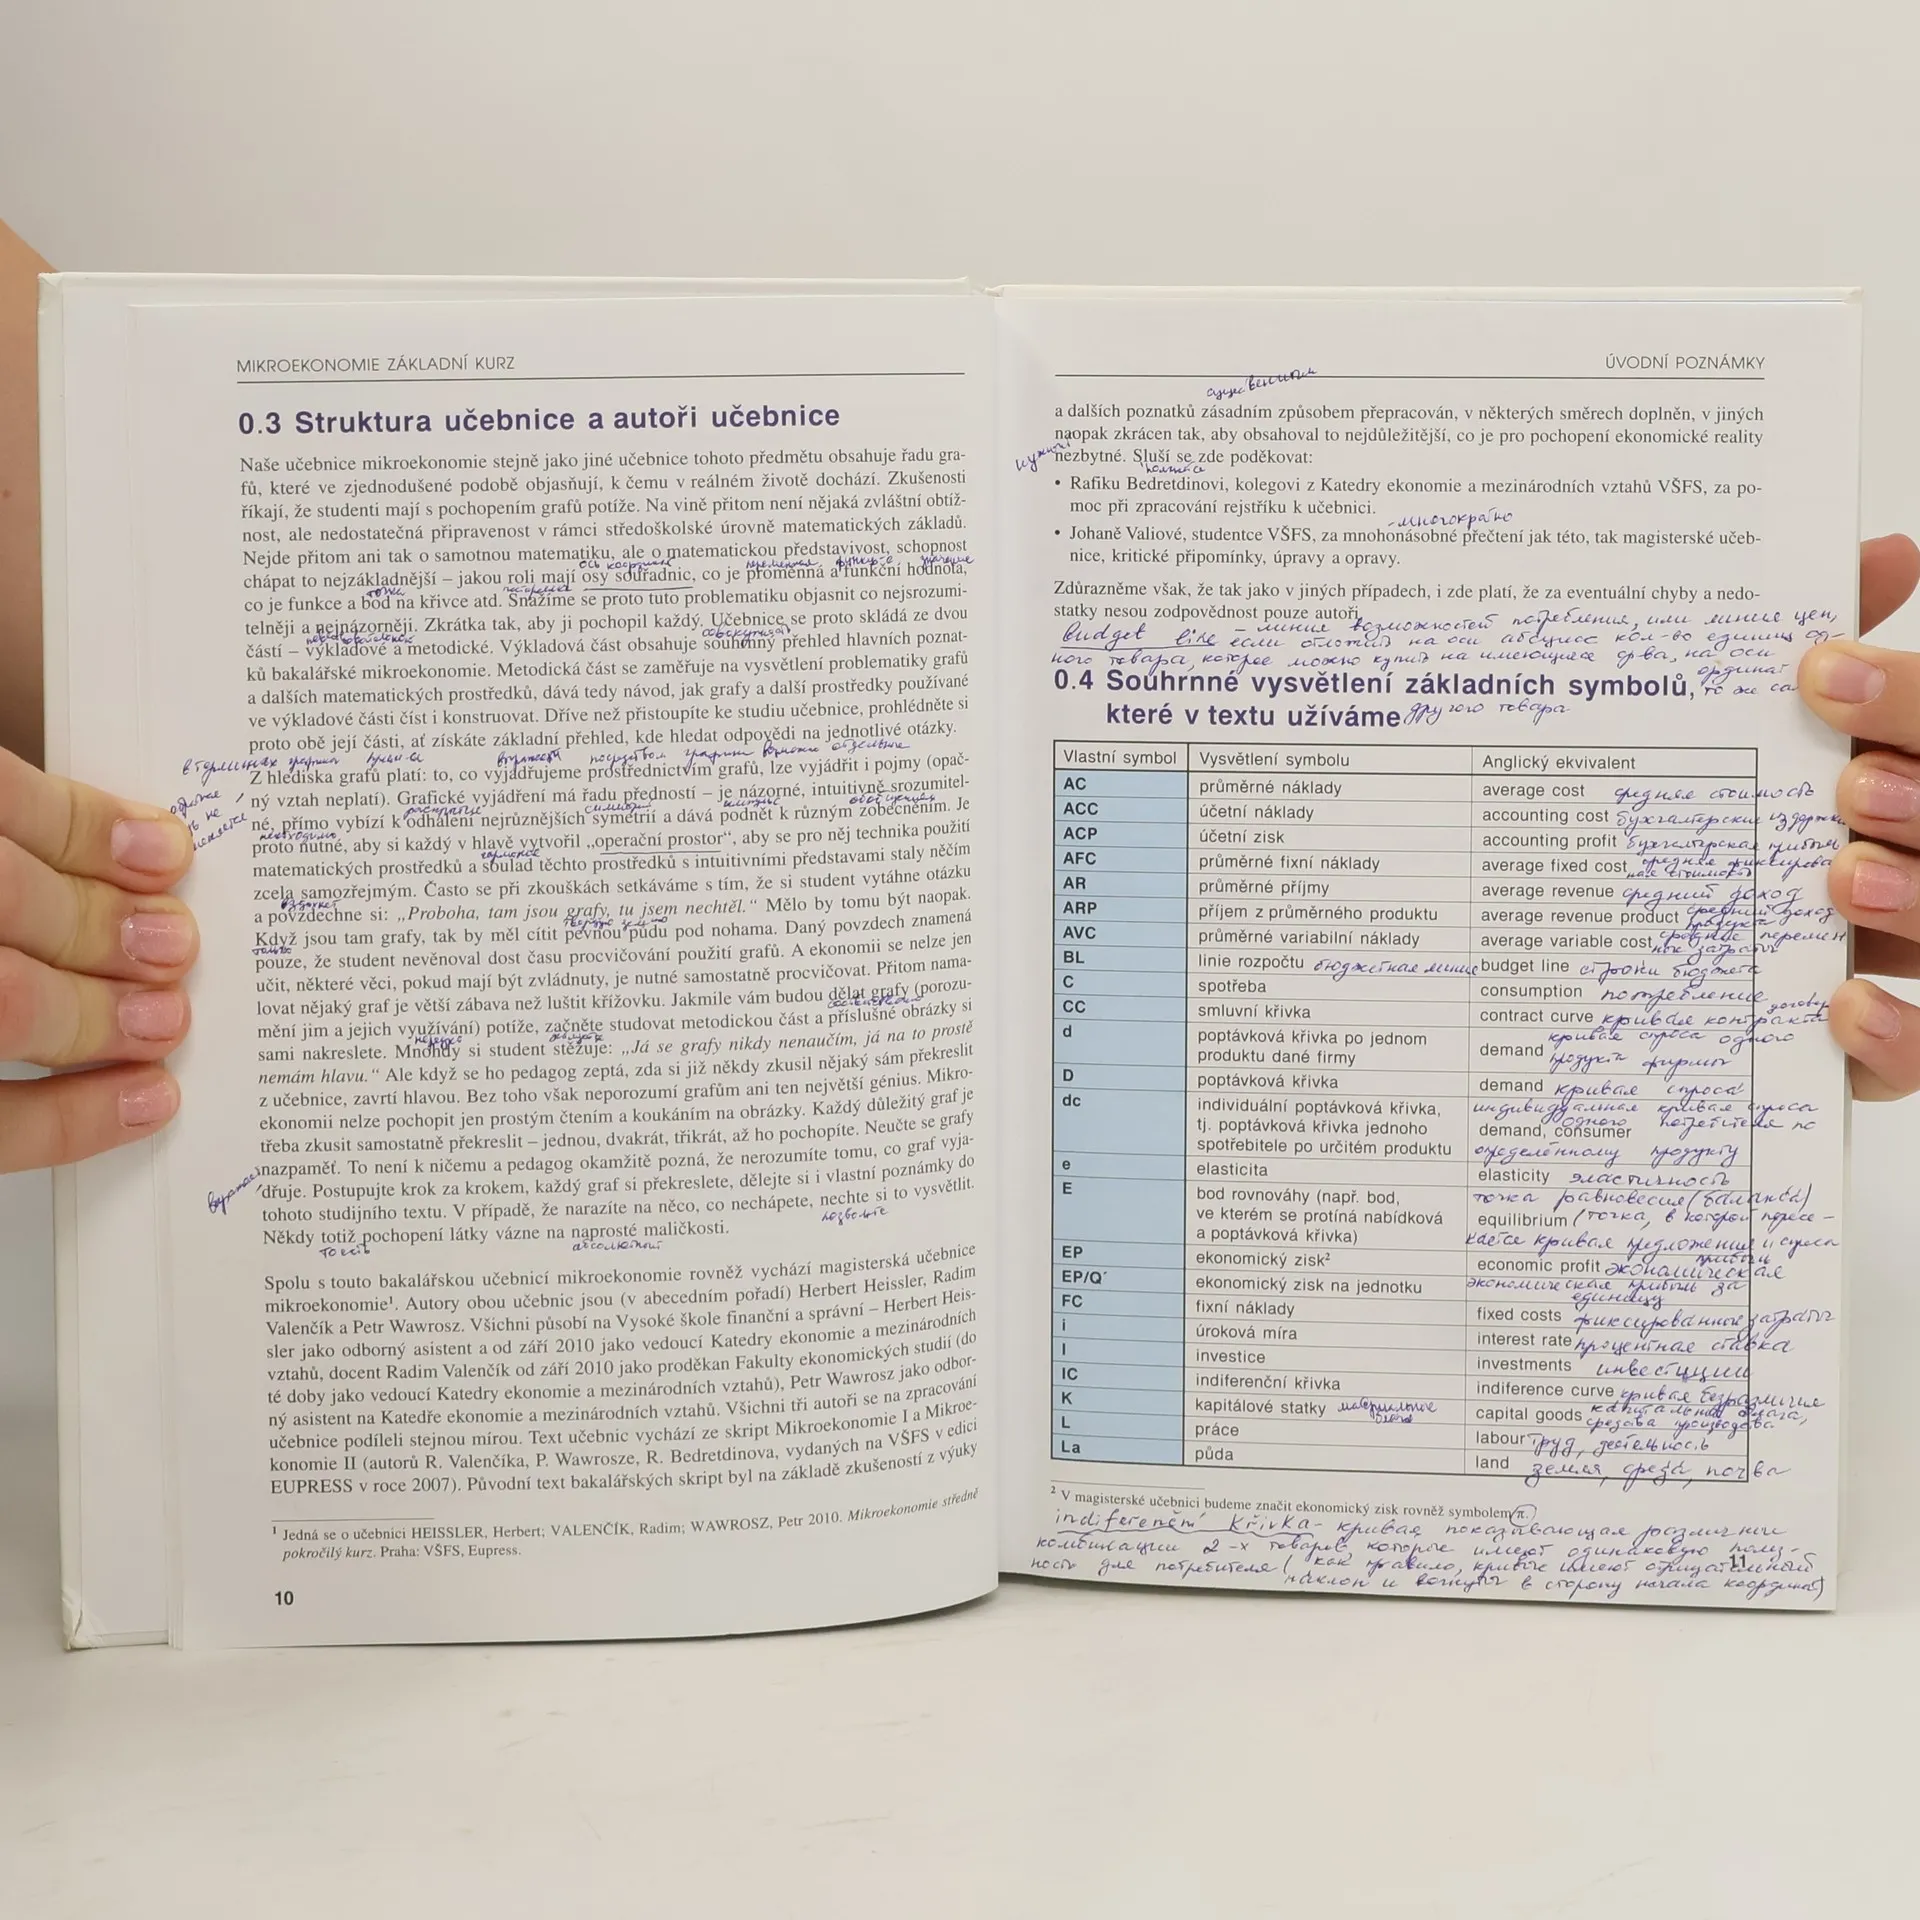 MIKROEKONOMIE ZÁKLADNÍ KURZ
0.3 Struktura učebnice a autoři učebnice
Naše učebnice mikroekonomie stejně jako jiné učebnice tohoto předmětu obsahuje řadu gra-
fů, které ve zjednodušené podobě objasňují, k čemu v reálném životě dochází. Zkušenosti
říkají, že studenti mají s pochopením grafů potíže. Na vině přitom není nějaká zvláštní obtíž-
nost, ale nedostatečná připravenost v rámci středoškolské úrovně matematických základů.
Nejde přitom ani tak o samotnou matematiku, ale o matematickou představivost, schopnost
ось координат переменная функц-о значение
chápat to nejzákladnější – jakou roli mají osy souřadnic, co je proměnná a funkční hodnota,
точка постараемся
co je funkce a bod na křivce atd. Snažíme se proto tuto problematiku objasnit co nejsrozumi-
telněji a nejnázorněji. Zkrátka tak, aby ji pochopil každý. Učebnice se proto skládá ze dvou
částí – výkladové a metodické. Výkladová část obsahuje souhonný přehled hlavních poznat-
ků bakalářské mikroekonomie. Metodická část se zaměřuje na vysvětlení problematiky grafů
a dalších matematických prostředků, dává tedy návod, jak grafy a další prostředky používané
ve výkladové části číst i konstruovat. Dříve než přistoupíte ke studiu učebnice, prohlédněte si
proto obě její části, ať získáte základní přehled, kde hledat odpovědi na jednotlivé otázky.
в терминах графика выразить посредством графики возможно отдельные
Z hlediska grafů platí: to, co vyjadřujeme prostřednictvím grafů, lze vyjádřit i pojmy (opač-
ný vztah neplatí). Grafické vyjádření má řadu předností – je názorné, intuitivně srozumitel-
né, přímo vybízí k odhálení nejrůznějších symetrií a dává podnět k různým zobecněním. Je
необходимо
proto nutné, aby si každý v hlavě vytvořil „operační prostor“, aby se pro něj technika použití
гармония
matematických prostředků a soulad těchto prostředků s intuitivními představami staly něčím
zcela samozřejmým. Často se při zkouškách setkáváme s tím, že si student vytáhne otázku
вздохнет
a povzdechne si: „Proboha, tam jsou grafy, tu jsem nechtěl.“ Mělo by tomu být naopak.
твердую землю
Když jsou tam grafy, tak by měl cítit pevnou půdu pod nohama. Daný povzdech znamená
только
pouze, že student nevěnoval dost času procvičování použití grafů. A ekonomii se nelze jen
učit, některé věci, pokud mají být zvládnuty, je nutné samostatně procvičovat. Přitom nama-
lovat nějaký graf je větší zábava než luštit křížovku. Jakmile vám budou dělat grafy (porozu-
mění jim a jejich využívání) potíže, začněte studovat metodickou část a příslušné obrázky si
sami nakreslete. Mnohdy si student stěžuje: „Já se grafy nikdy nenaučím, já na to prostě
nemám hlavu.“ Ale když se ho pedagog zeptá, zda si již někdy zkusil nějaký sám překreslit
z učebnice, zavrtí hlavou. Bez toho však neporozumí grafům ani ten největší génius. Mikro-
ekonomii nelze pochopit jen prostým čtením a koukáním na obrázky. Každý důležitý graf je
třeba zkusit samostatně překreslit – jednou, dvakrát, třikrát, až ho pochopíte. Neučte se grafy
nazpaměť. To není k ničemu a pedagog okamžitě pozná, že nerozumíte tomu, co graf vyja-
dřuje. Postupujte krok za krokem, každý graf si překreslete, dělejte si i vlastní poznámky do
tohoto studijního textu. V případě, že narazíte na něco, co nechápete, nechte si to vysvětlit.
позвольте
Někdy totiž pochopení látky vázne na naprosté maličkosti.
то есть
Spolu s touto bakalářskou učebnicí mikroekonomie rovněž vychází magisterská učebnice
mikroekonomie¹. Autory obou učebnic jsou (v abecedním pořadí) Herbert Heissler, Radim
Valenčík a Petr Wawrosz. Všichni působí na Vysoké škole finanční a správní – Herbert Heis-
sler jako odborný asistent a od září 2010 jako vedoucí Katedry ekonomie a mezinárodních
vztahů, docent Radim Valenčík od září 2010 jako proděkan Fakulty ekonomických studií (do
té doby jako vedoucí Katedry ekonomie a mezinárodních vztahů), Petr Wawrosz jako odbor-
ný asistent na Katedře ekonomie a mezinárodních vztahů. Všichni tři autoři se na zpracování
učebnice podíleli stejnou mírou. Text učebnic vychází ze skript Mikroekonomie I a Mikroe-
konomie II (autorů R. Valenčíka, P. Wawrosze, R. Bedretdinova, vydaných na VŠFS v edici
EUPRESS v roce 2007). Původní text bakalářských skript byl na základě zkušeností z výuky
¹ Jedná se o učebnici HEISSLER, Herbert; VALENČÍK, Radim; WAWROSZ, Petr 2010. Mikroekonomie středně
pokročilý kurz. Praha: VŠFS, Eupress.
10
ÚVODNÍ POZNÁMKY
a dalších poznatků zásadním způsobem přepracován, v některých směrech doplněn, v jiných
naopak zkrácen tak, aby obsahoval to nejdůležitější, co je pro pochopení ekonomické reality
nezbytné. Sluší se zde poděkovat:
• Rafiku Bedretdinovi, kolegovi z Katedry ekonomie a mezinárodních vztahů VŠFS, za po-
moc při zpracování rejstříku k učebnici.
многократно
• Johaně Valiové, studentce VŠFS, za mnohonásobné přečtení jak této, tak magisterské učeb-
nice, kritické připomínky, úpravy a opravy.
Zdůrazněme však, že tak jako v jiných případech, i zde platí, že za eventuální chyby a nedo-
statky nesou zodpovědnost pouze autoři.
линия возможностей потребления, или линия цен,
budget line если отложить на оси абсцисс кол-во единиц од-
ного товара, которое можно купить на имеющиеся ср-ва, на оси
ординат
0.4 Souhrnné vysvětlení základních symbolů, то же са
které v textu užíváme другого товара
Vlastní symbol Vysvětlení symbolu Anglický ekvivalent
AC průměrné náklady average cost средняя стоимость
ACC účetní náklady accounting cost бухгалтерские издержки
ACP účetní zisk accounting profit бухгалтерская прибыль
AFC průměrné fixní náklady average fixed cost средняя фиксирова
ная стоимость
AR průměrné příjmy average revenue средний доход
ARP příjem z průměrného produktu average revenue product средний доход
продукта
AVC průměrné variabilní náklady average variable cost средние перемен
ные затраты
BL linie rozpočtu бюджетная линия budget line строки бюджета
C spotřeba consumption потребление
CC smluvní křivka contract curve кривая контракта
договор
d poptávková křivka po jednom кривая спроса одного
produktu dané firmy demand продукта фирмы
D poptávková křivka demand кривая спроса
dc individuální poptávková křivka, индивидуальная кривая спроса
tj. poptávková křivka jednoho demand, consumer одного потребителя по
spotřebitele po určitém produktu определённому продукту
e elasticita elasticity эластичность
E bod rovnováhy (např. bod, точка равновесия (баланса)
ve kterém se protíná nabídková equilibrium (точка, в которой пересе-
a poptávková křivka) кается кривая предложения и спроса
EP ekonomický zisk² economic profit экономическая прибыль
EP/Q´ ekonomický zisk na jednotku экономическая прибыль за
единицу
FC fixní náklady fixed costs фиксированные затраты
i úroková míra interest rate процентная ставка
I investice investments инвестиции
IC indiferenční křivka indiference curve кривая безразличия
K kapitálové statky материальные блага capital goods капитальные блага,
средства производства
L práce labour труд, деятельность
La půda land земля, среда, почва
² V magisterské učebnici budeme značit ekonomický zisk rovněž symbolem π.
indiferenční křivka - кривая показывающая различные
комбинации 2-х товаров которые имеют одинаковую полез-
ность для потребителя (как правило, кривые имеют отрицательный
наклон и вогнуты в сторону начала координат)
11